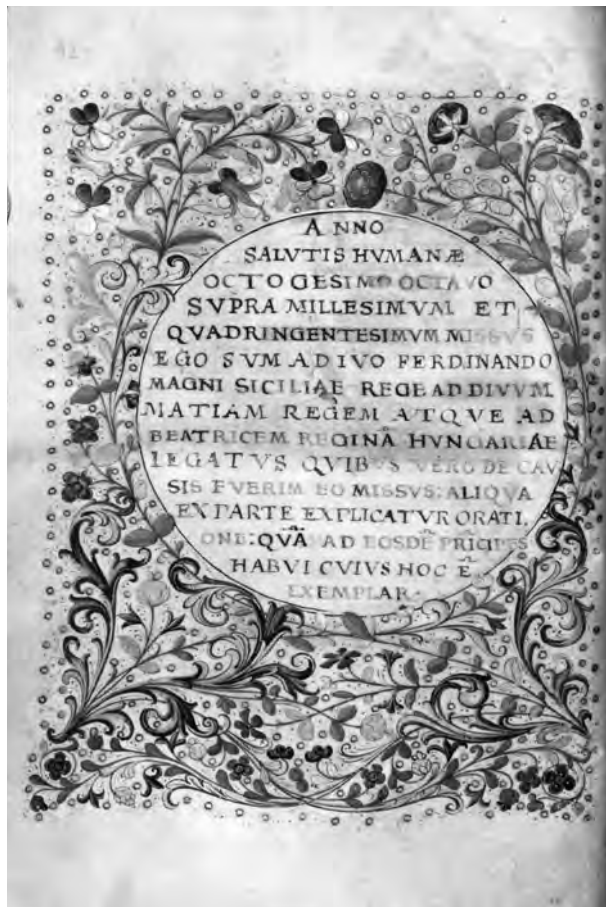 ANNO
SALVTIS HVMANÆ
OCTOGESIMO OCTAVO
SVPRA MILLESIMVM ET
QVADRINGENTESIMVM MISSVS
EGO SVM AD IVO FERDINANDO
MAGNI SICILIAE REGE AD DIVVM
MATIAM REGEM ATQVE AD
BEATRICEM REGINĀ HVNGARIAE
LEGATVS QVIBVS VERO DE CAV
SIS FVERIM EO MISSVS: ALIQVA
EX PARTE EXPLICATVR ORATI,
ONE: QVĀ AD EOSDĒ PRĪCIPES
HABVI CVIVS HOC Ē
EXEMPLAR·